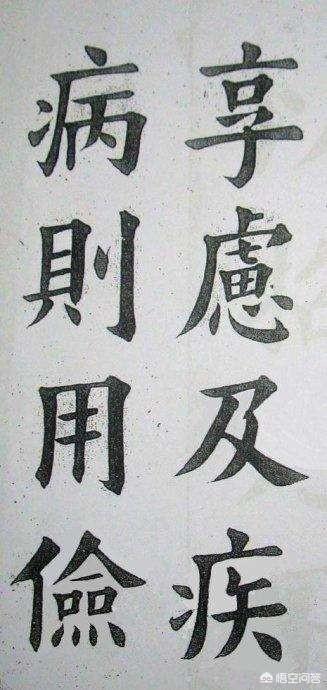 享慮及疾
病則用儉
悟空问答